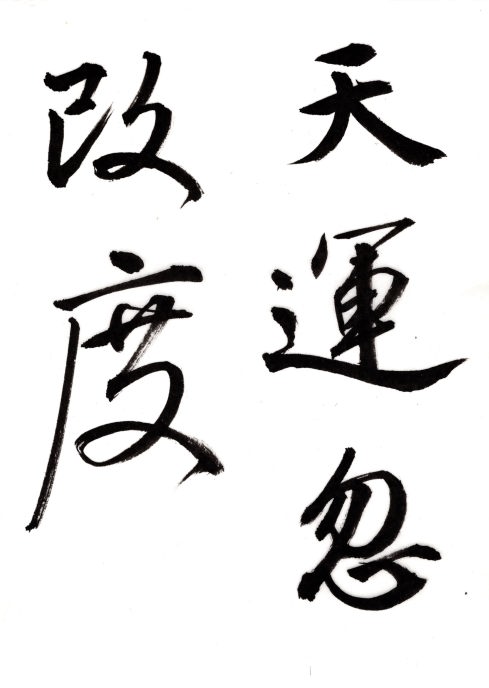 天運忽
改度